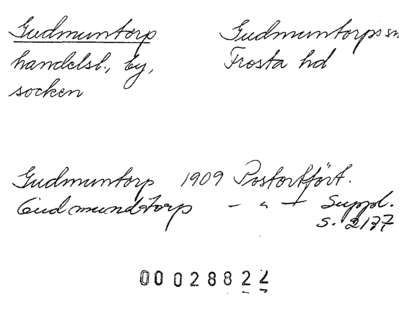 Gudmuntorp Gudmuntorps sn
handelsl., by, Frosta hd
socken
Gudmuntorp 1909 Postortfört.
Gudmundstorp - " - + Suppl.
s. 2177
00028822